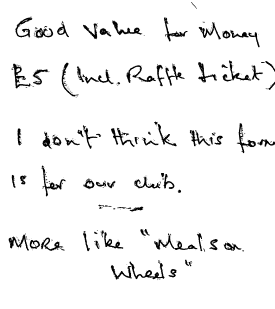 Good value for Money
£5 (Incl. Raffle ticket)
I don't think this form
is for our club.
More like "Meals on
Wheels"